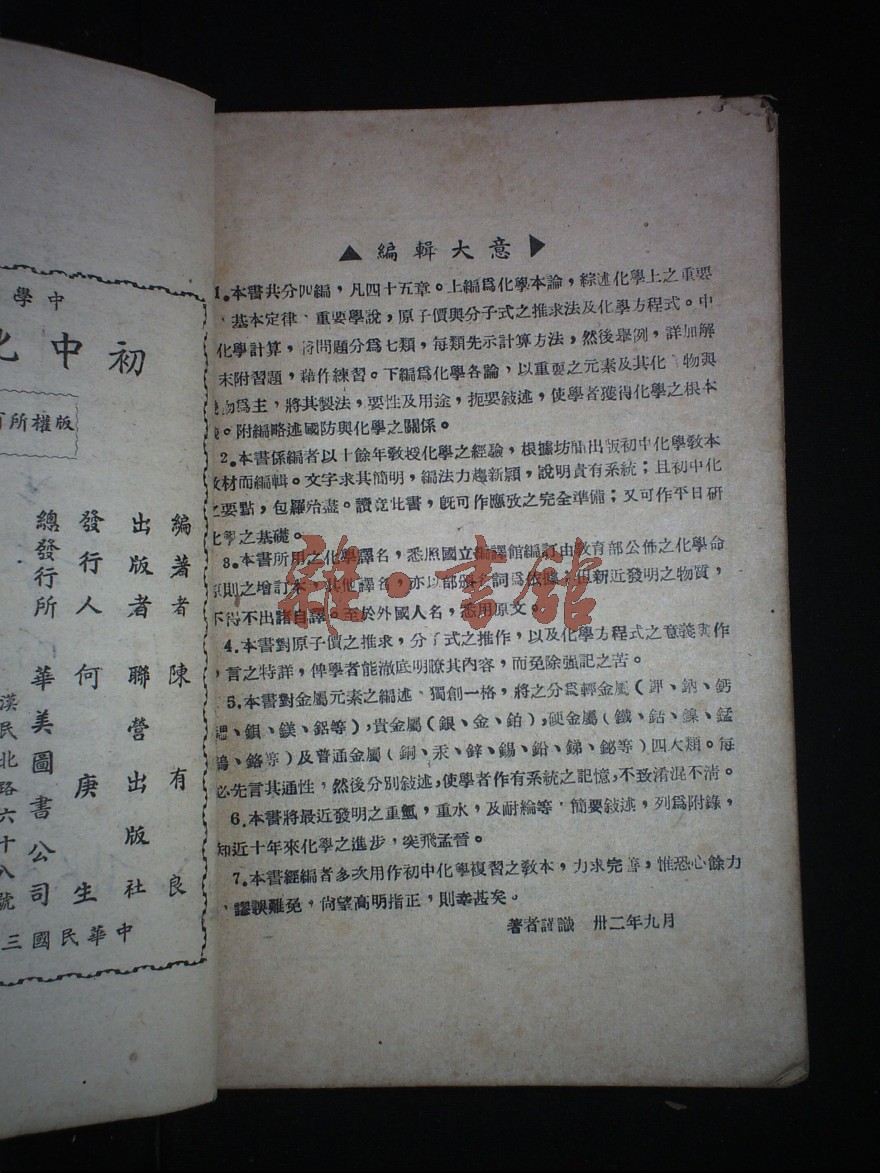 ▲編輯大意▶
1.本書共分四編，凡四十五章。上編爲化學本論，綜述化學上之重要
、基本定律、重要學說，原子價與分子式之推求法及化學方程式。中
化學計算，將問題分爲七類，每類先示計算方法，然後舉例，詳加解
末附習題，藉作練習。下編爲化學各論，以重要之元素及其化 物與
物爲主，將其製法，要性及用途，扼要敍述，使學者獲得化學之根本
。附編略述國防與化學之關係。
2.本書係編者以十餘年敎授化學之經驗，根據坊間出版初中化學敎本
敎材而編輯。文字求其簡明，編法力趨新穎，說明貴有系統；且初中化
之要點，包羅殆盡。讀竟此書，旣可作應攷之完全準備；又可作平日研
化學之基礎。
3.本書所用之化學譯名，悉照國立編譯館編訂由敎育部公佈之化學命
原則之增訂本，其他譯名，亦以部頒名詞爲依據；但新近發明之物質，
不得不出諸自譯。至於外國人名，悉用原文。
4.本書對原子價之推求，分子式之推作，以及化學方程式之意義與作
，言之特詳，俾學者能澈底明瞭其內容，而免除强記之苦。
5.本書對金屬元素之編述、獨創一格，將之分爲輕金屬（鉀、鈉、鈣
鍶、鋇、鎂、鋁等），貴金屬（銀、金、鉑），硬金屬（鐵、鈷、鎳、錳
鎢、鉻等）及普通金屬（銅、汞、鋅、錫、鉛、銻、鉍等）四大類。每
必先言其通性，然後分別敍述，使學者作有系統之記憶，不致淆混不清。
6.本書將最近發明之重氫，重水，及耐綸等，簡要敍述，列爲附錄，
知近十年來化學之進步，突飛孟晉。
7.本書經編者多次用作初中化學複習之敎本，力求完善，惟恐心餘力
、謬誤難免，尙望高明指正，則幸甚矣。
著者謹識 卅二年九月
中學
初中化
版權所有
編著者 陳有良
出版者 聯營出版社
發行人 何庚生
總發行所 華美圖書公司
漢民北路六十八號
中華民國三
雜·書館